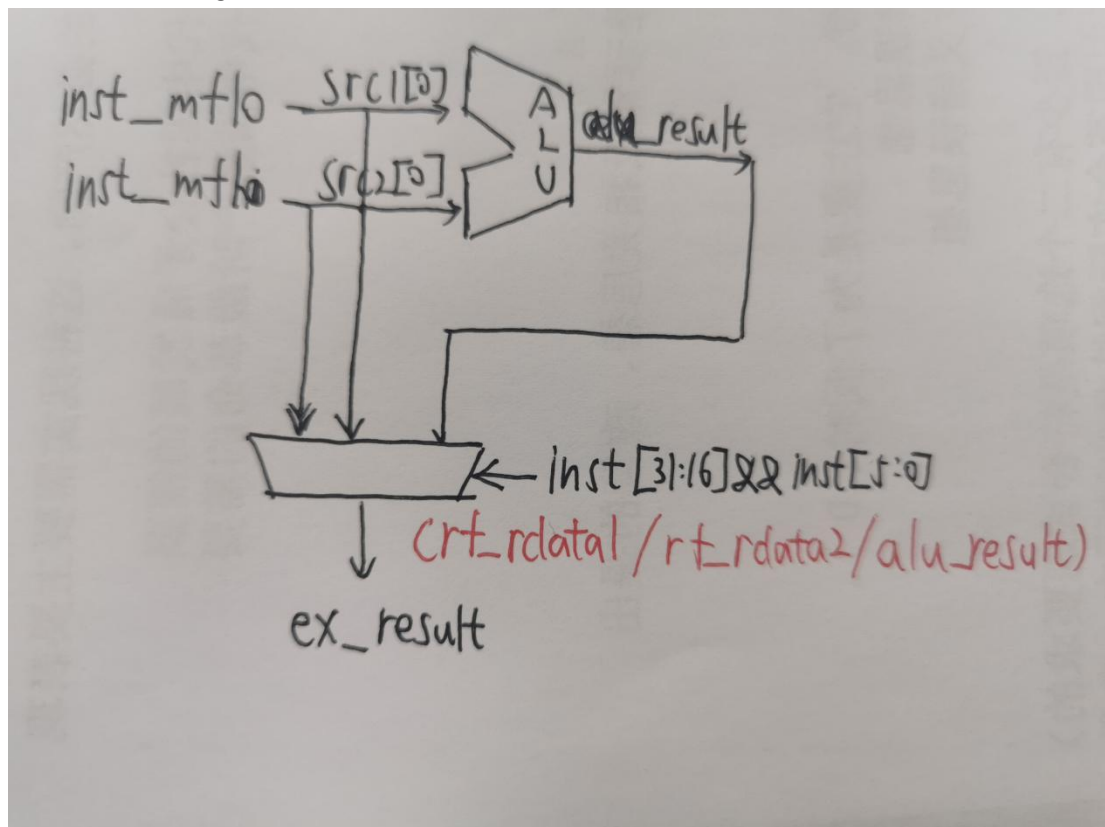 inst_mflo
src1[0]
inst_mfhi
src2[0]
ALU
alu_result
inst[31:16]&&inst[5:0]
(rt_rdata1/rt_rdata2/alu_result)
ex_result